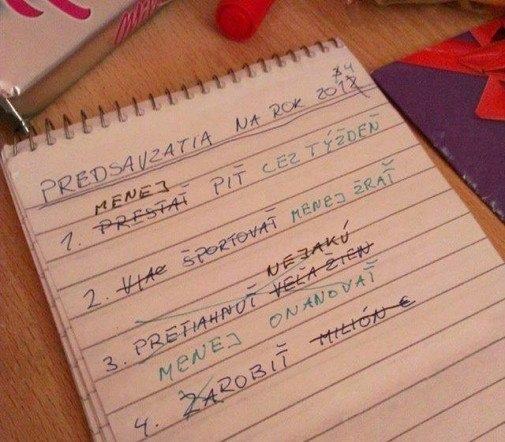 PREDSAVZATIA NA ROK 201
MENEJ
1. PRESTAŤ PIŤ CEZ TÝŽDEŇ
2. VIAC ŠPORTOVAŤ MENEJ ŽRAŤ
NEJAKÚ
3. PRETIAHNUŤ VEĽA ŽIEN
MENEJ ONANOVAŤ
4. ZAROBIŤ MILIÓN €